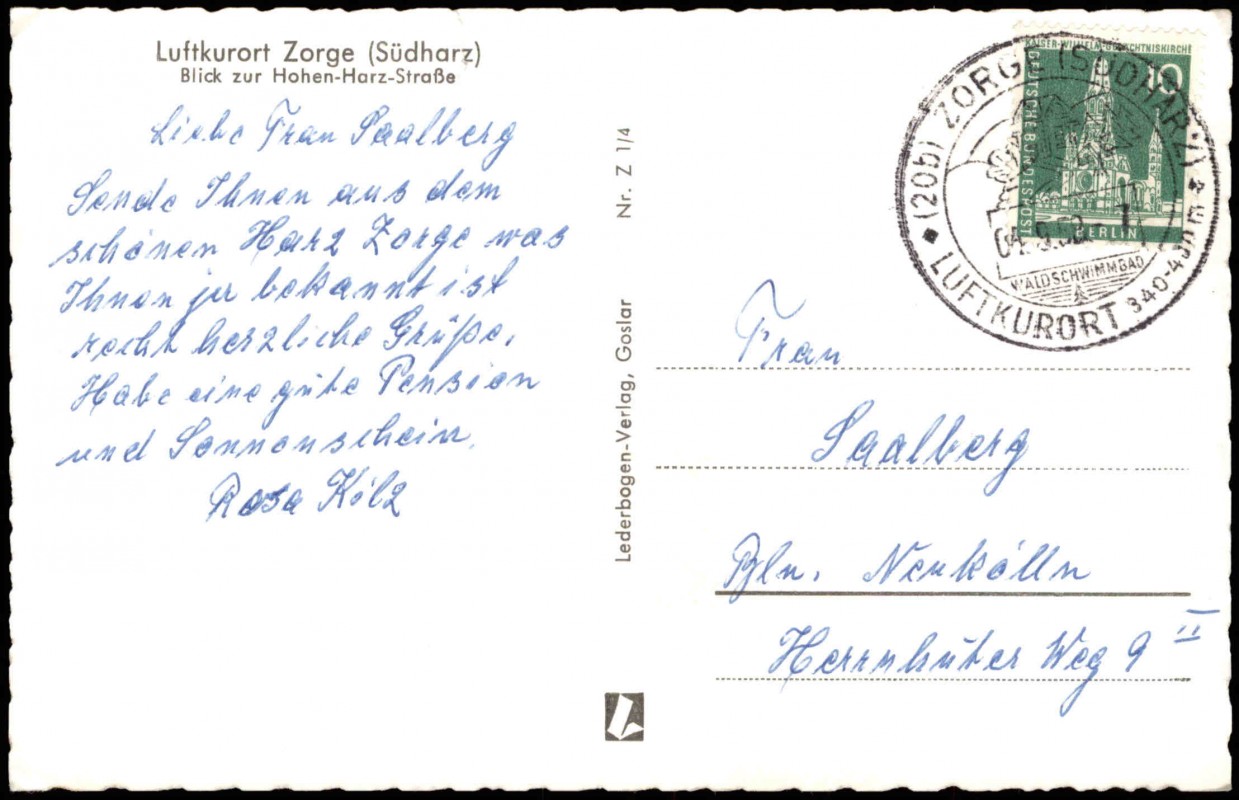 Luftkurort Zorge (Südharz)
Blick zur Hohen-Harz-Straße
Liebe Frau Saalberg
Sende Ihnen aus dem
schönen Harz Zorge was
Ihnen ja bekannt ist
recht herzliche Grüße.
Habe eine gute Pension
und Sonnenschein.
Rosa Kölz
Nr. Z 1/4
Lederbogen-Verlag, Goslar
KAISER-WILHELM-GEDÄCHTNISKIRCHE
10
DEUTSCHE BUNDESPOST
BERLIN
(20b) ZORGE (SÜDHARZ)
WALDSCHWIMMBAD
LUFTKURORT 340-430 m
Frau
Saalberg
Bln. Neukölln
Herrnhuter Weg 9 II